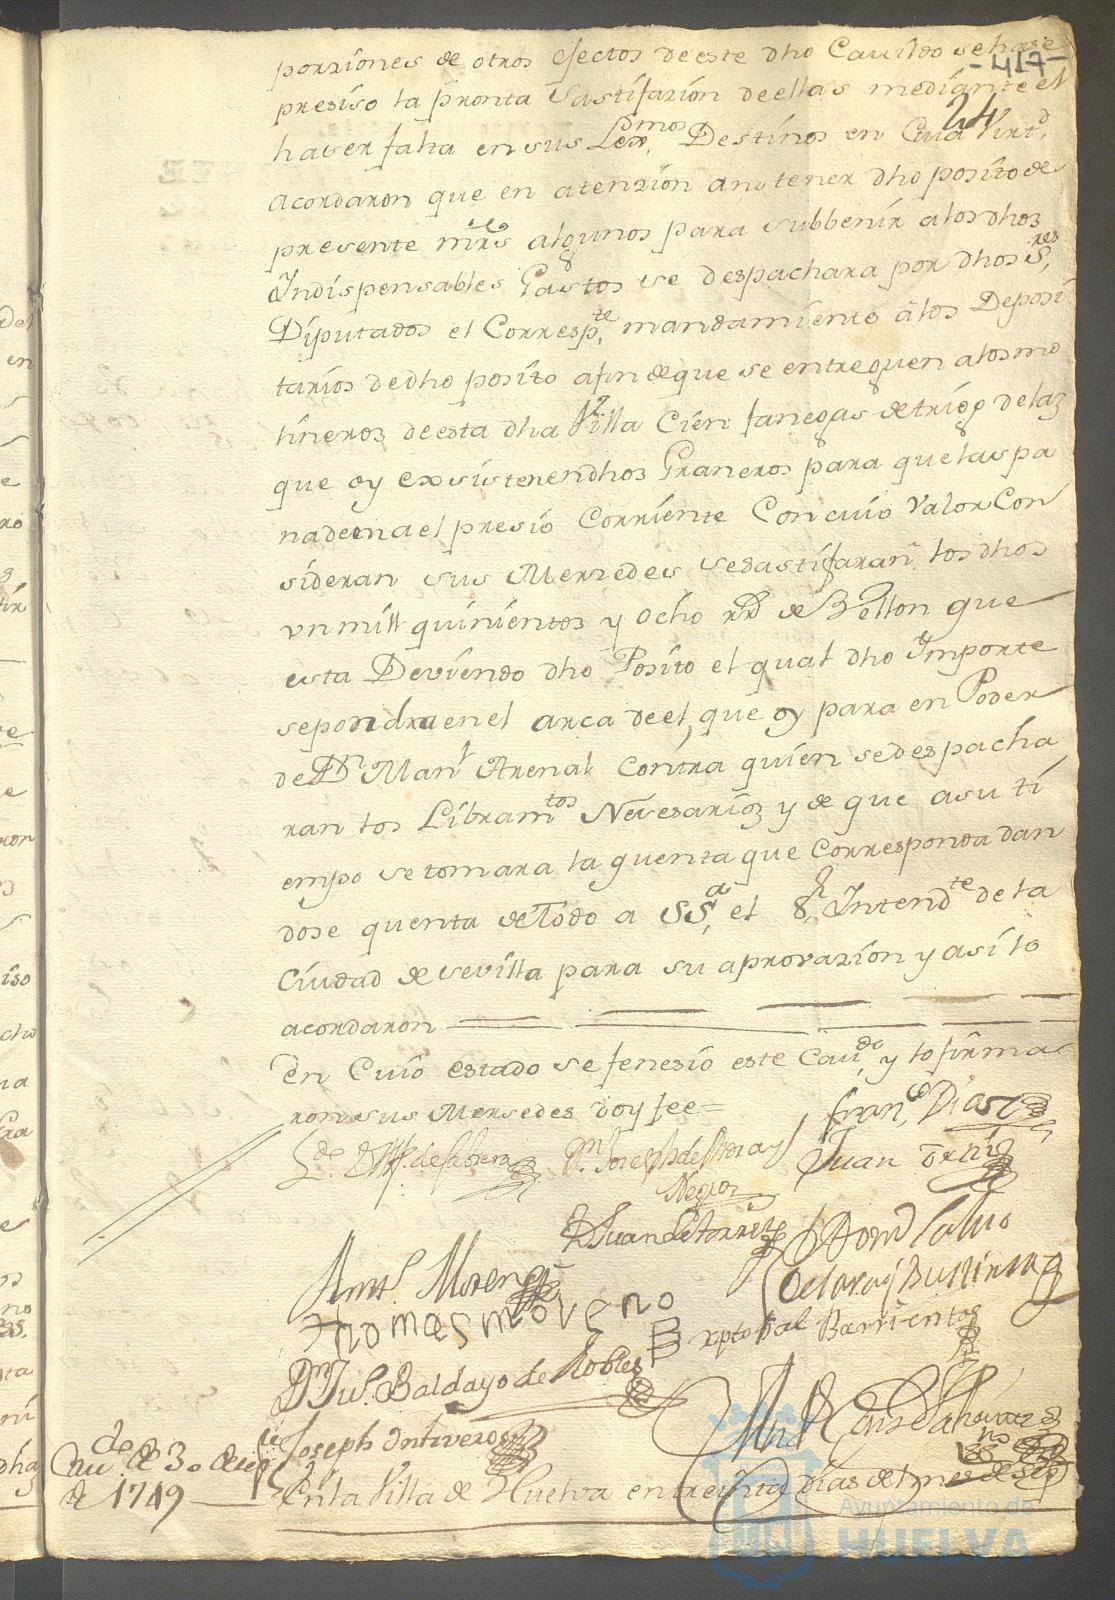 -417-
24
porziones de otros efectos de este dho Cavildo se hase
presiso la pronta Sastifazion de ellas mediante el
haser falta en sus Lexmos. Destinos en Cuia Virtd.
acordaron que en atenzion ano tener dho posito de
presente mrs algunos para subbenir a los dhos
Indispensables Gastos se despachara por dhos Sres.
Diputados el Correspte. mandamiento a los Deposi
tarios de dho posito afin de que se entreguen a los mo
lineros de esta dha Villa Cien fanegas de trigo de las
que oy Exsisten en dhos Graneros para que las pa
nadeen a el presio Corriente Con cuio Valor Con
sideran sus Merzedes se sastifaran los dhos
un mill quinientos y ocho rrs de Bellon que
esta Deviendo dho Posito el qual dho Importe
se pondra en el arca de el, que oy para en Poder
de Dn Manl Arenal contra quien se despacha
ran los Libramtos Nesesarios y de que a su ti
empo se tomara la quenta que Corresponda dan
dose quenta de Todo a SSa, el Sr. Intendte de la
Ciudad de Sevilla para su aprovazion y asi lo
acordaron
En Cuio estado se fenesio este Cavdo, y lo firma
ron sus Mersedes doy fee =
Franco, Dias
Dn Joseph de Mora y
Negron
Juan Ortiz
D Juan de Torres
Domo Calbo
de Lara y Bustinza
Anto. Moreno
thomas moreno
xptobal Barrientos
Dn Jul. Baldayo de Robles
Joseph Ontiveros
Cavdo de 30 de
de 1749
En la Villa de Huelva en treinta Dias del mes de Sep
Ayuntamiento de
HUELVA